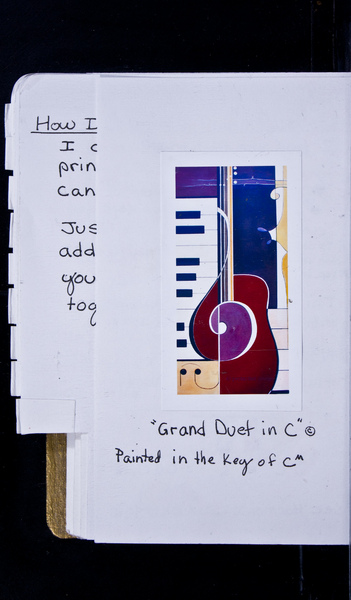 How I
I
prin
can
Jus
add
you
tog
"Grand Duet in C" ©
Painted in the Key of CM